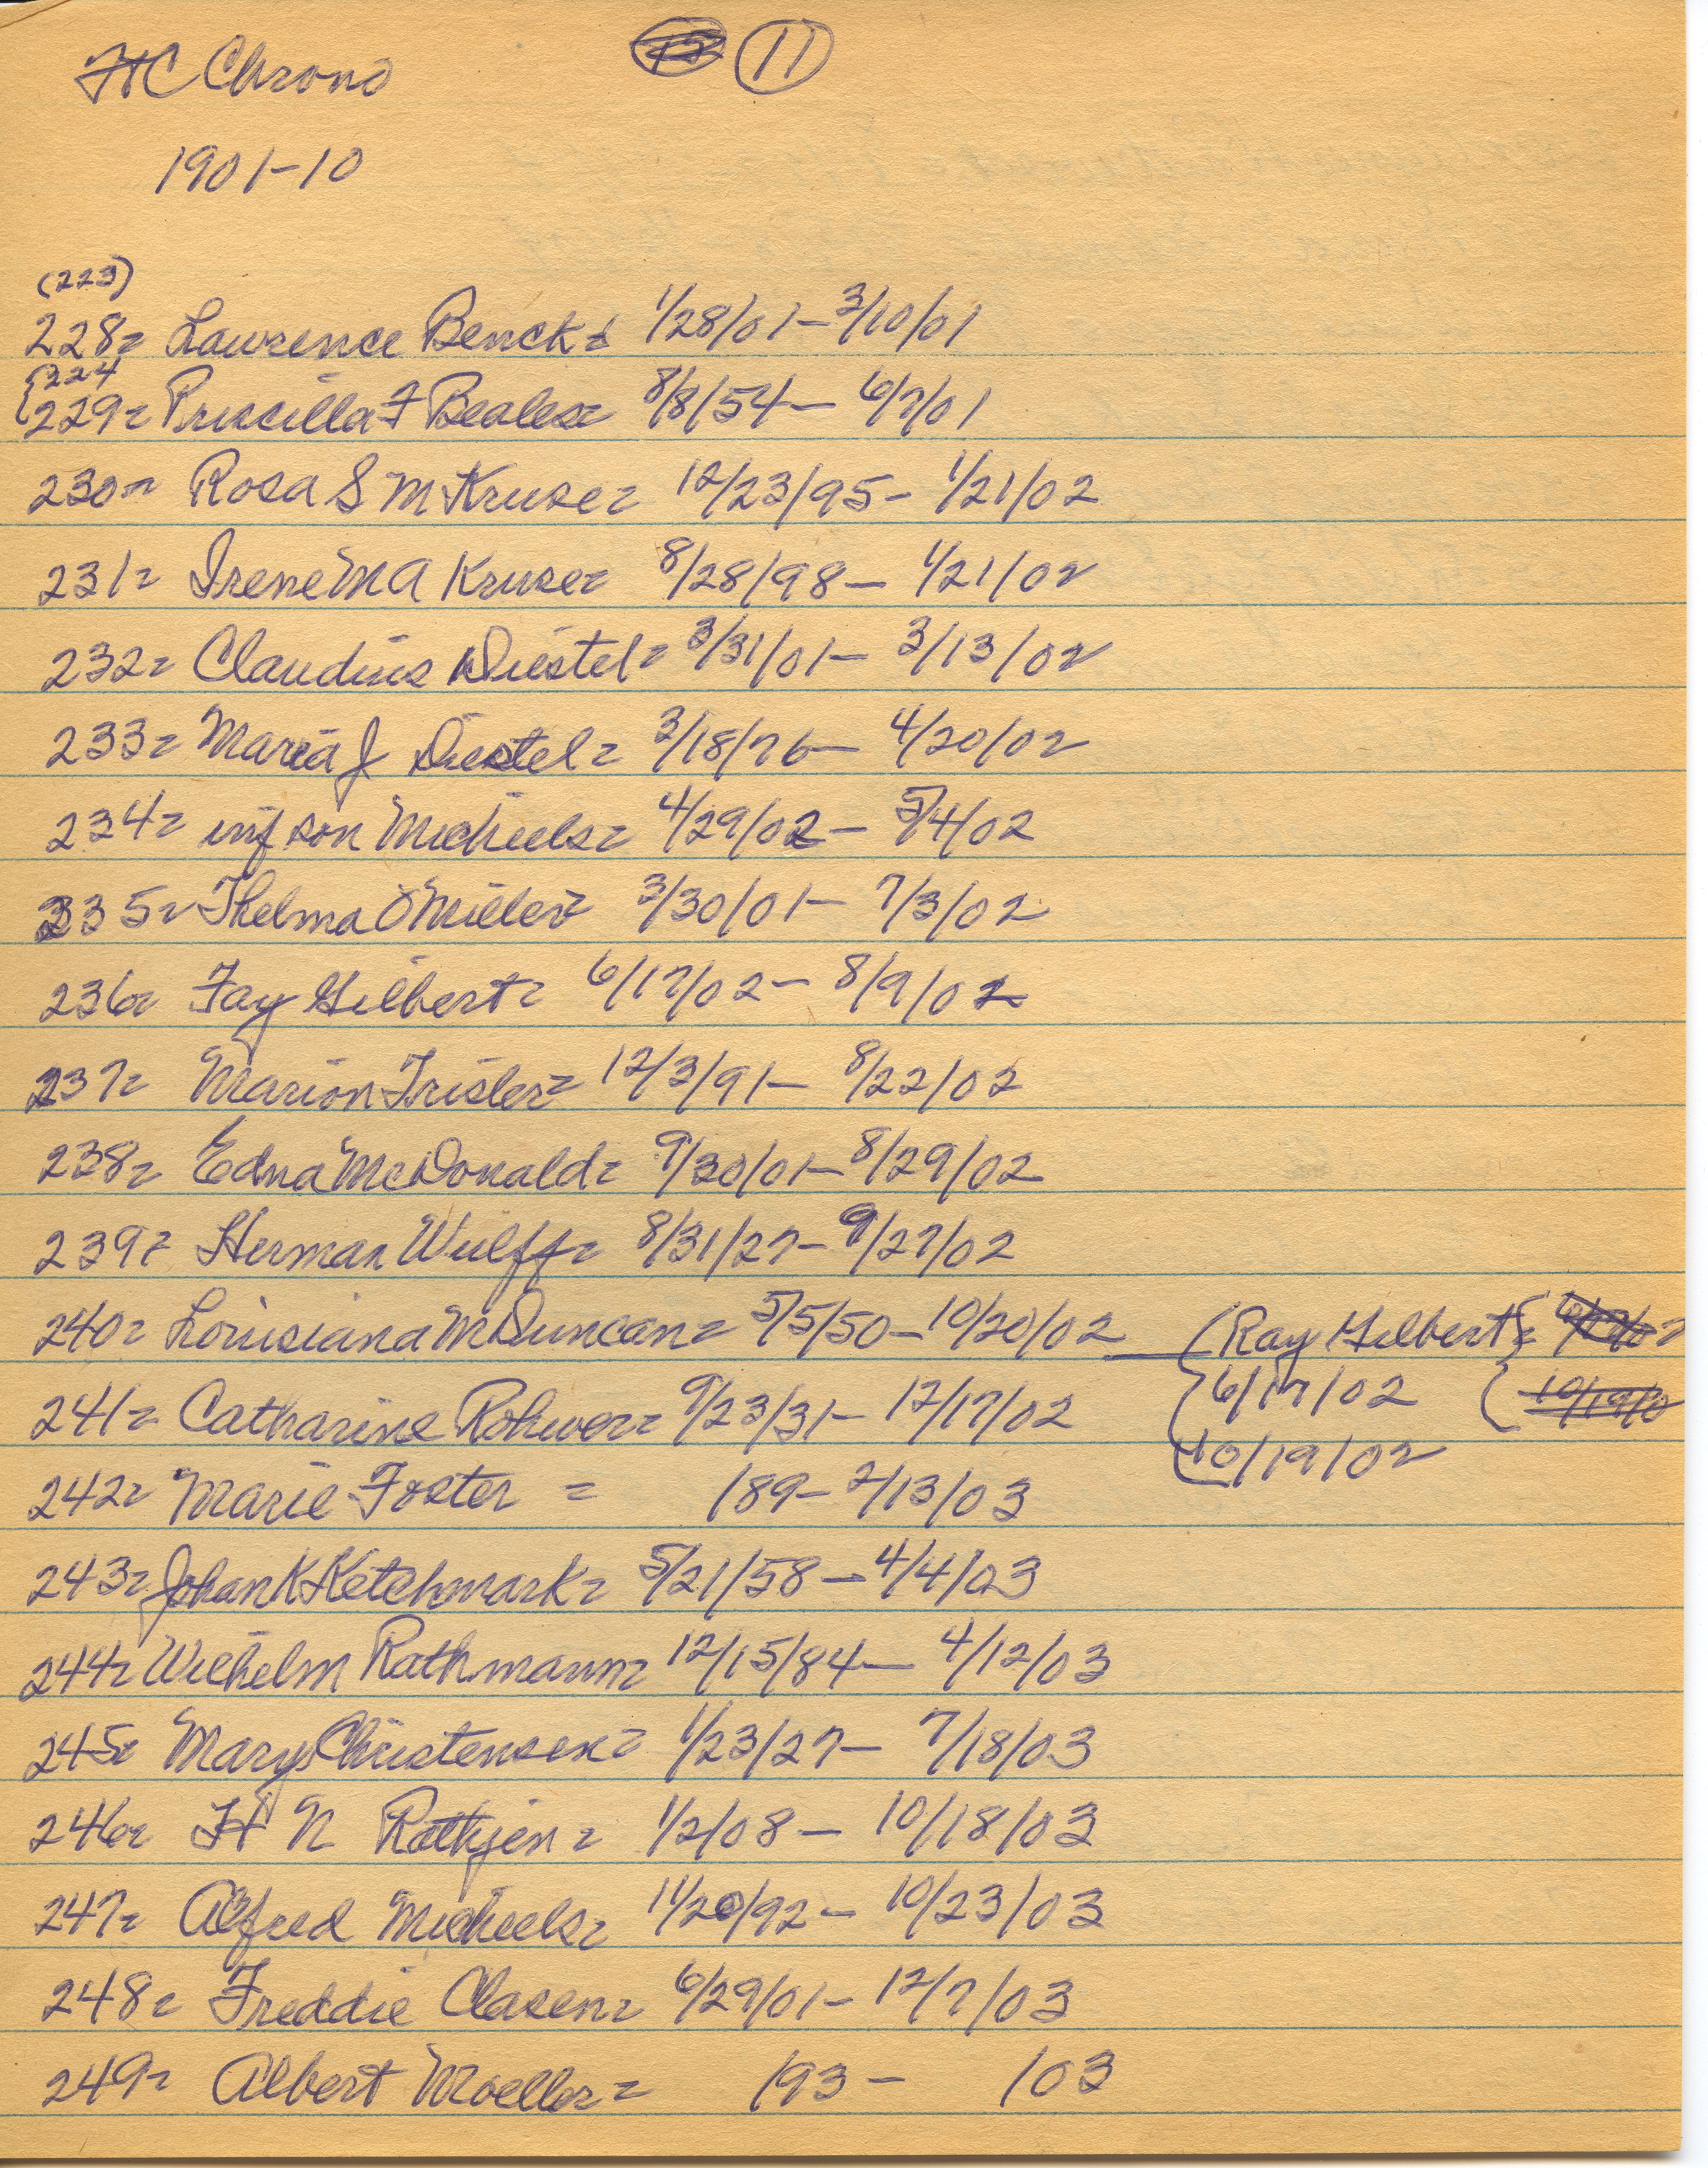 HC Chrono 11
1901-10
(223)
228= Lawrence Benck= 1/28/01-3/10/01
{224
229= Priscilla F Beales= 8/8/54- 6/7/01
230= Rosa S M Kruse= 12/23/95- 1/21/02
231= Irene M A Kruse= 8/28/98- 1/21/02
232= Claudius Diestel= 3/31/01- 3/13/02
233= Maria J Diestel= 3/18/76- 4/20/02
234= inf son Micheels= 4/29/02- 5/4/02
235= Thelma O Miller= 3/30/01- 7/3/02
236= Fay Gilbert= 6/17/02- 8/9/02
237= Marion Trisler= 12/3/91- 8/22/02
238= Edna McDonald= 9/30/01-8/29/02
239= Herman Wulff= 8/31/27- 9/27/02
240= Louisiana M Duncan= 5/5/50-10/20/02 (Ray Gilbert=
241= Catharine Rohwer= 9/23/31- 12/17/02 6/17/02
10/19/02
242= Marie Foster = /89- 2/13/03
243= Johan K Ketchmark= 5/21/58-4/4/03
244= Wilhelm Rathmann= 12/15/84- 4/12/03
245= Mary Christensen= 1/23/27- 7/18/03
246= H N Rathjen= 1/2/08- 10/18/03
247= Alfred Micheels= 11/20/92- 10/23/03
248= Freddie Clasen= 6/29/01- 12/7/03
249= Albert Moeller= /93- /03